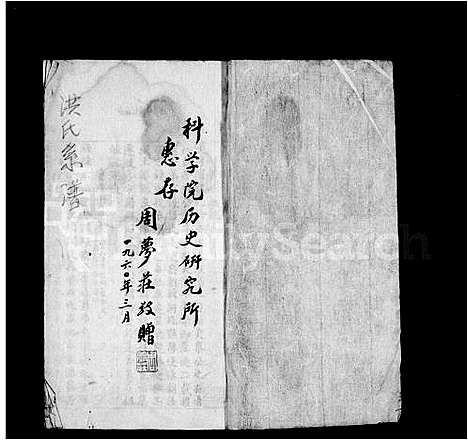 科学院历史研究所
惠存
周夢莊敬贈
一九六〇年三月
洪氏宗譜
FamilySearch